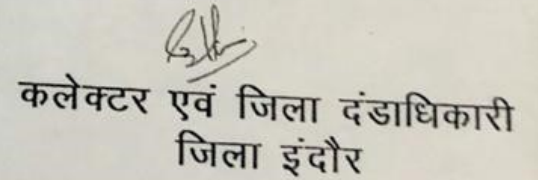 कलेक्टर एवं जिला दंडाधिकारी
जिला इंदौर